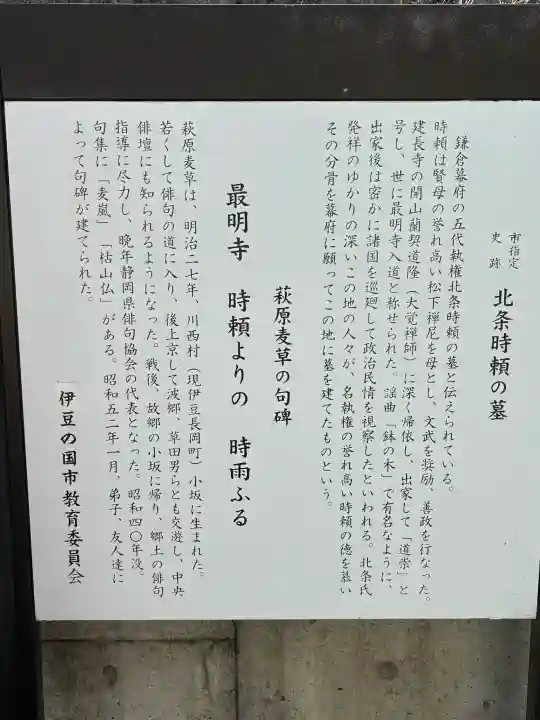 市指定
史跡
北条時頼の墓
鎌倉幕府の五代執権北条時頼の墓と伝えられている。
時頼は賢母の誉れ高い松下禅尼を母とし、文武を奨励、善政を行なった。
建長寺の開山蘭契道隆(大覚禅師)に深く帰依し、出家して「道崇」と
号し、世に最明寺入道と称せられた。謡曲「鉢の木」で有名なように、
出家後は密かに諸国を巡廻して政治民情を視察したといわれる。北条氏
発祥のゆかりの深いこの地の人々が、名執権の誉れ高い時頼の徳を慕い
その分骨を幕府に願ってこの地に墓を建てたものという。
萩原麦草の句碑
最明寺 時頼よりの 時雨ふる
萩原麦草は、明治二七年、川西村(現伊豆長岡町)小坂に生まれた。
若くして俳句の道に入り、後上京して波郷、草田男らとも交遊し、中央
俳壇にも知られるようになった。戦後、故郷の小坂に帰り、郷土の俳句
指導に尽力し、晩年静岡県俳句協会の代表となった。昭和四〇年没。
句集に「麦嵐」「枯山仏」がある。昭和五二年一月、弟子、友人達に
よって句碑が建てられた。
伊豆の国市教育委員会